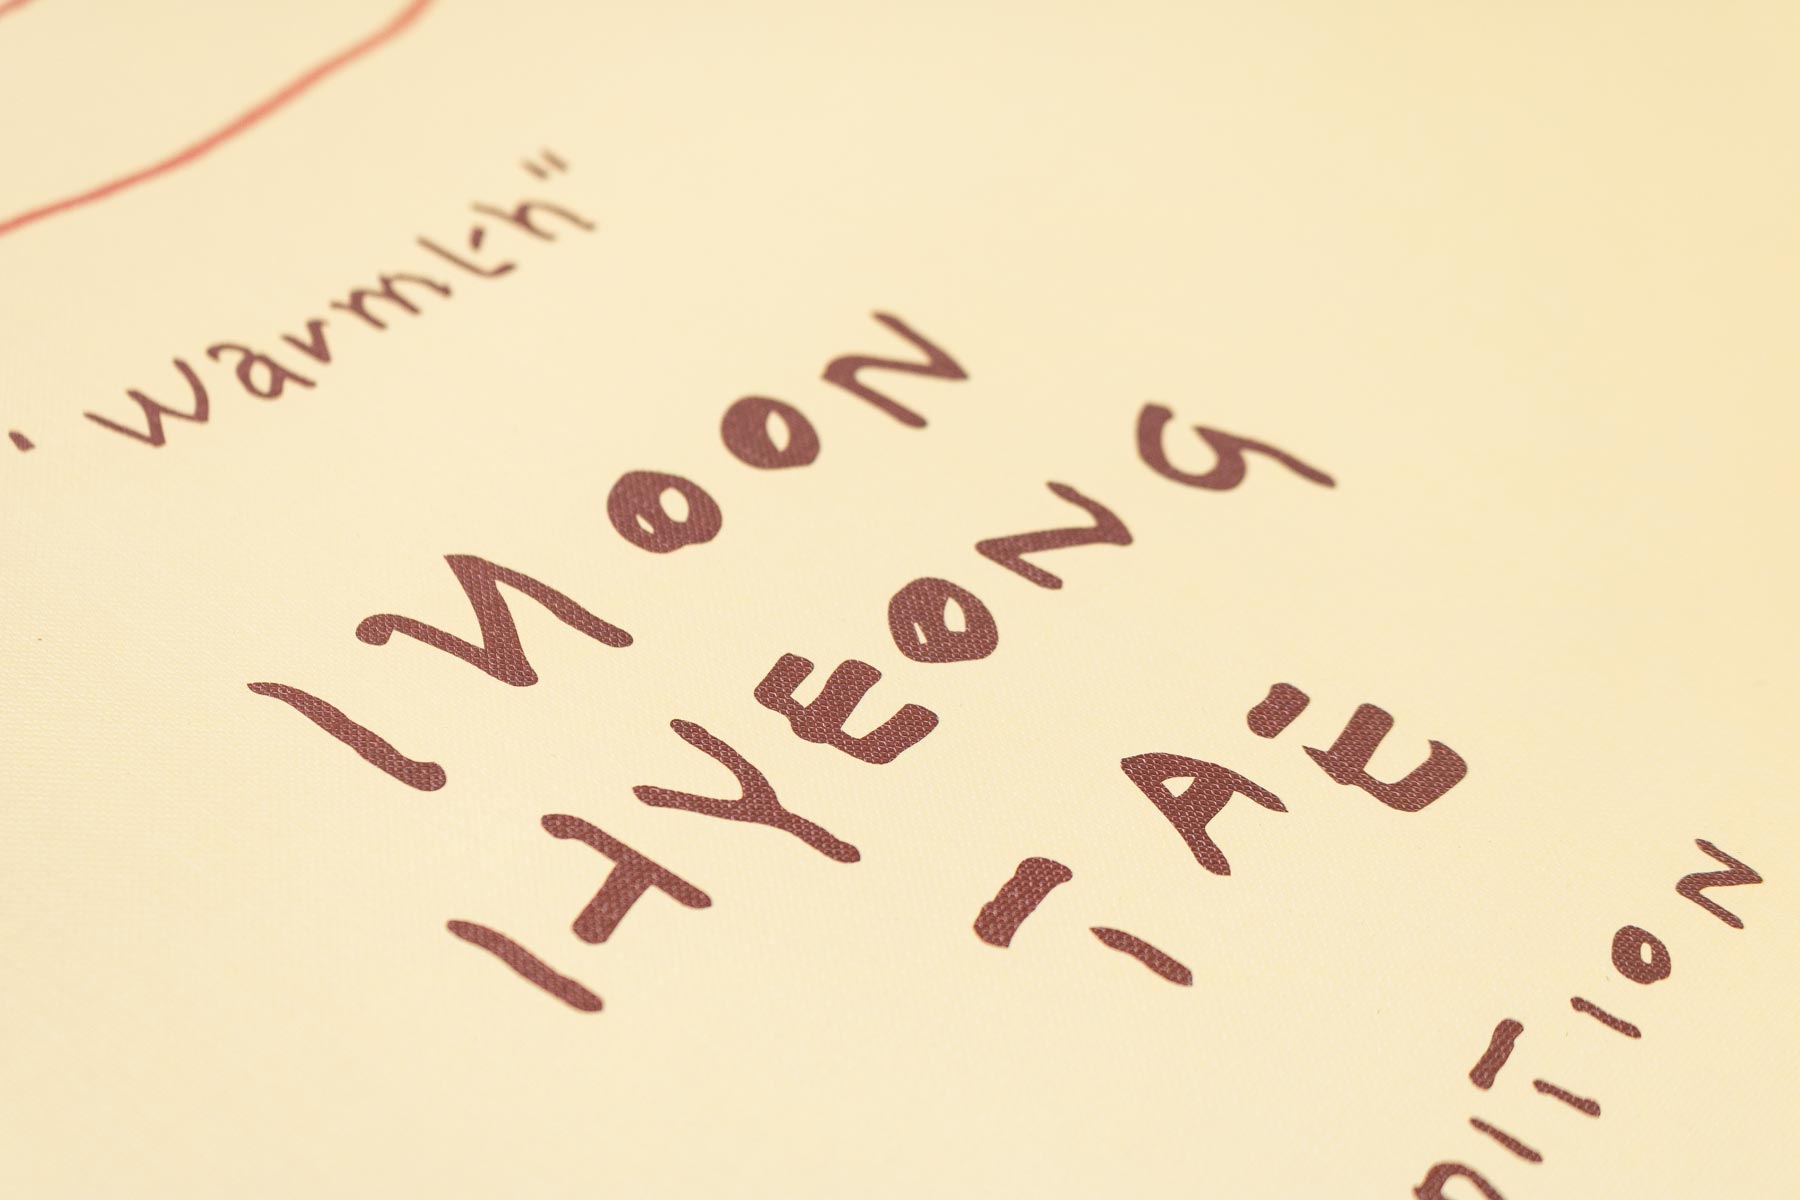 "Warmth"
MOON
HYEONG
TAE
DITION